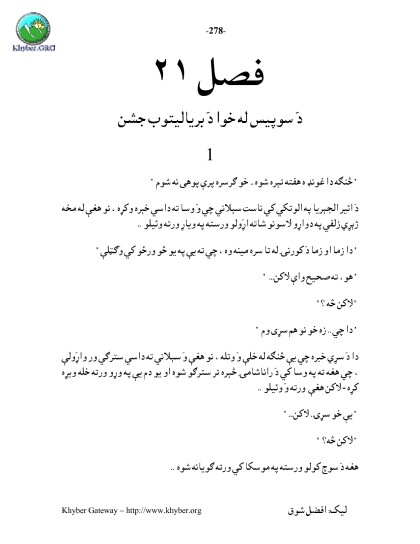 -278-
Khyber.ORG
فصل ۲۱
دَ سوپيس له خوا دَ برياليتوب جشن
1
"څنګه دا غونډه هفته تېره شوه۔ خو ګرسره پرې پوهی نه شوم"
دَ اثير الجبريا په الوتکي کي ناست سېلاني چي وَ وسا ته داسي خبره وکړه ، نو هغې له مخه
ژېړي زلفي په دواړو لاسونو شاته اړولو ورسته په وياړ ورته وئيلو ..
"دا زما او زما دَ کورنۍ له تا سره مينه وه ، چي ته يې په يو څو ورځو کي وګټلې"
"هو، ته صحيح واې لاکن.. "
"لاکن څه ؟"
"دا چي.. زه خو نو هم سړی وم"
دا دَ سړي خبره چي يې څنګه له خلې وَوتله ، نو هغې وَ سېلاني ته داسي سترګي ور واړولې
، چي هغه ته په وسا کي دَ رانا شامۍ څېره تر سترګو شوه او يو دم يې په وړو ورته خله وېړه
کړه-لاکن هغې ورته وَ وئيلو ..
"يې خو سړی.. لاکن.. "
"لاکن څه ؟"
هغه دَ سوچ کولو ورسته په موسکا کي ورته ګويانه شوه ..
Khyber Gateway – http://www.khyber.org
ليک: افضل شوق